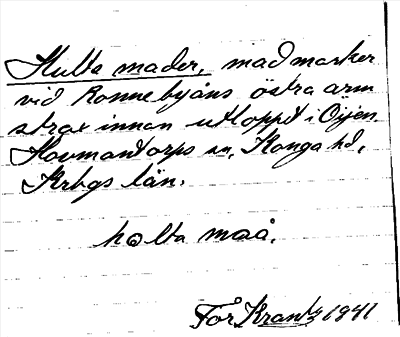 Hulta mader, madmarker
vid Ronnebyåns östra arm
strax innan utloppet i Öijen.
Hovmantorps sn, Konga hd,
Krbgs län.
hɷlta maå.
För Krantz 1941